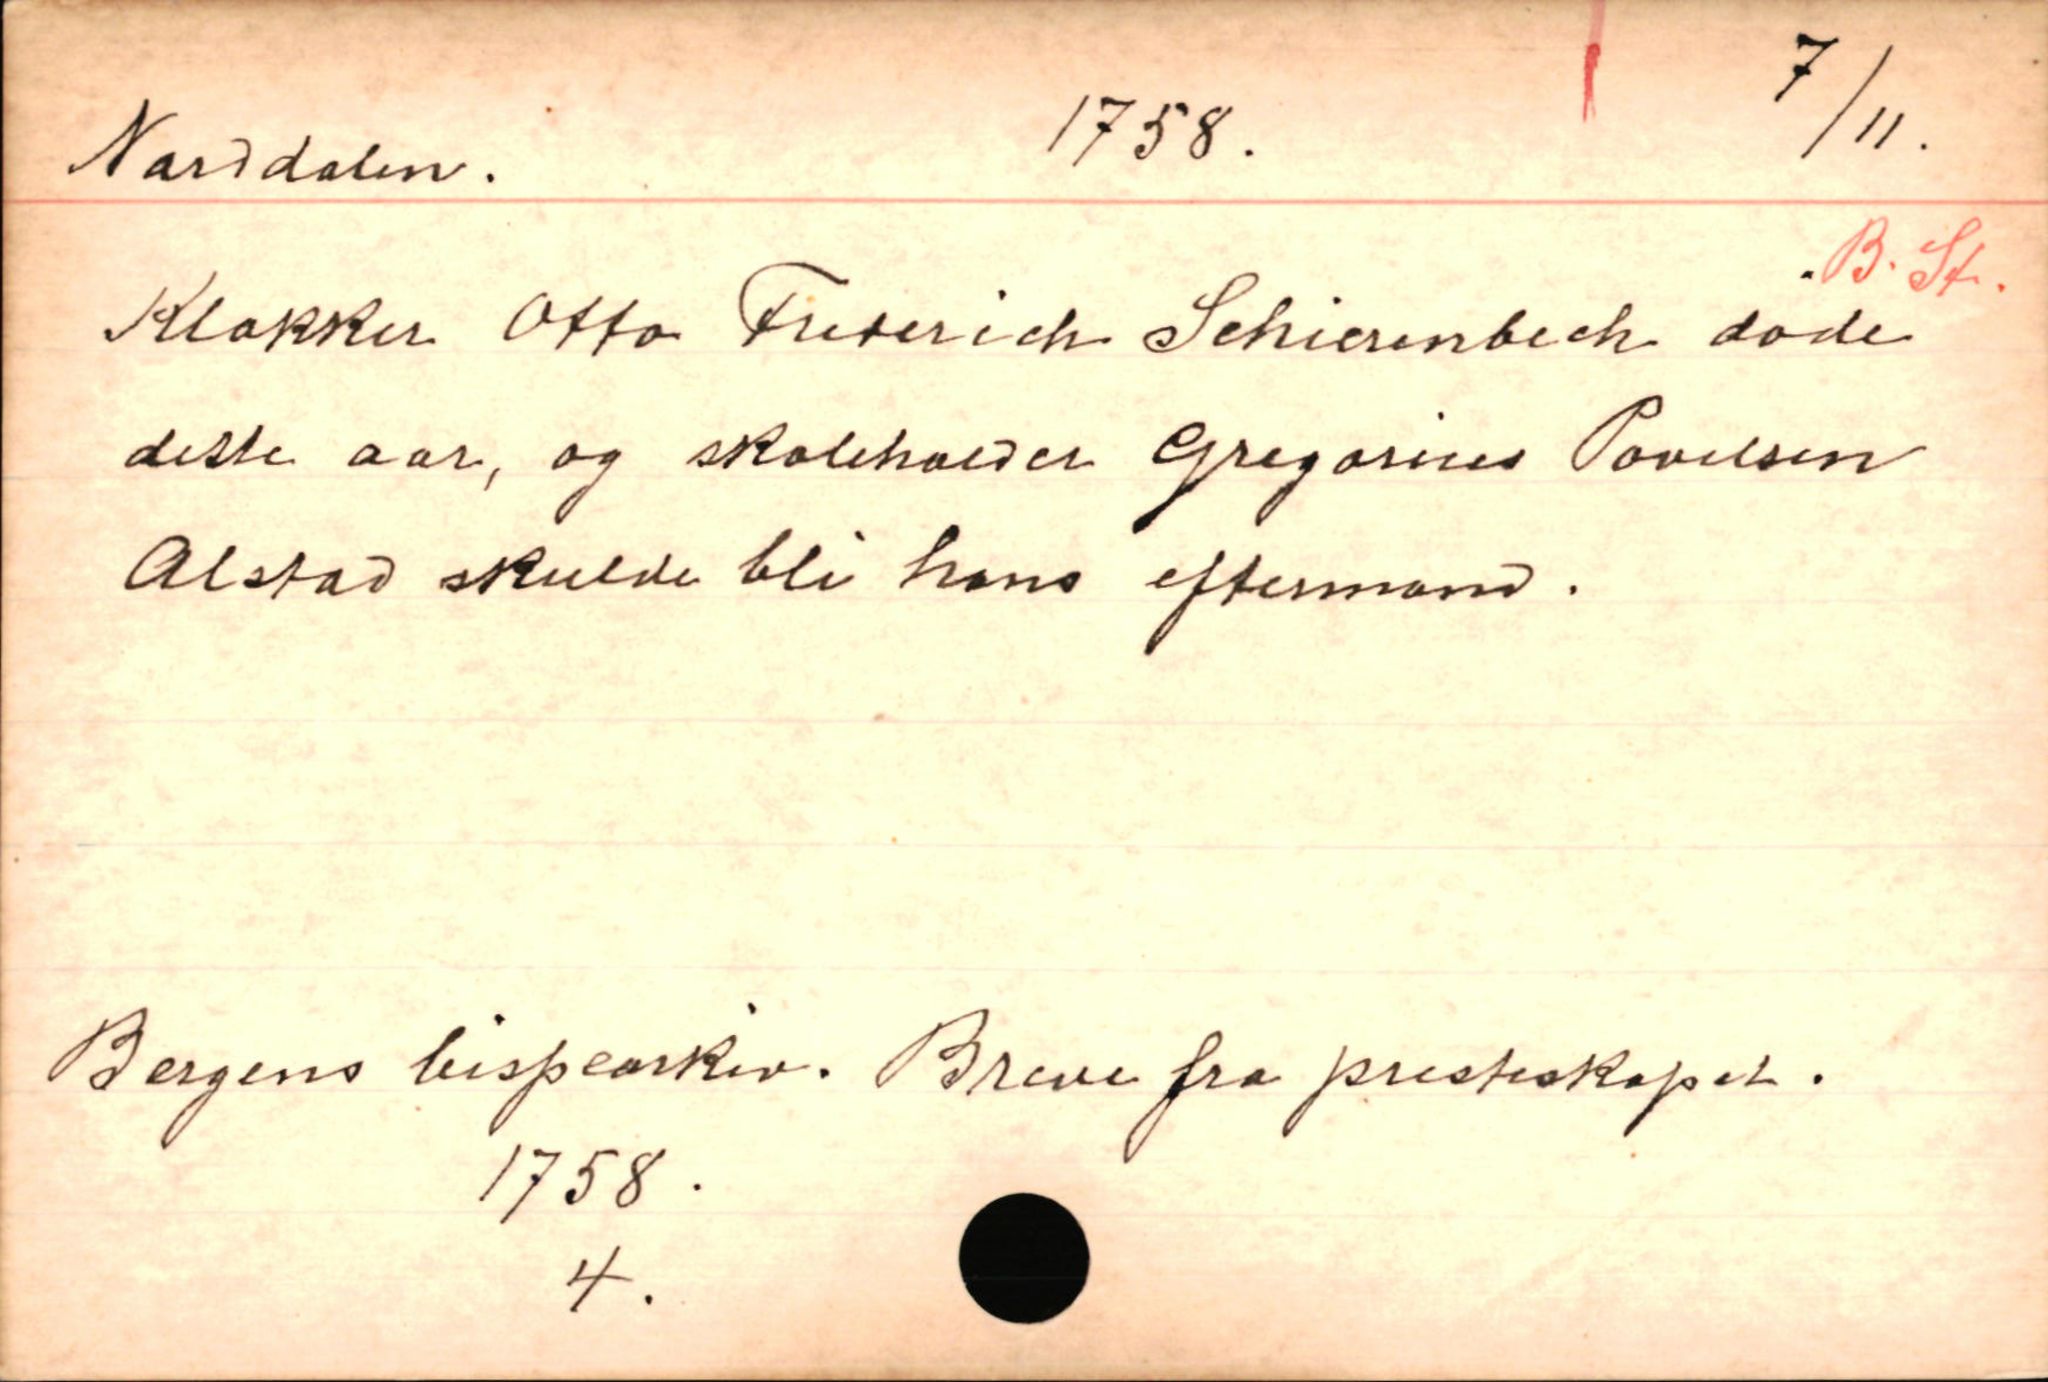 Norddalen. 1758. 7/11.
B. St.
Klokker Otto Frederich Schierenbech døde
dette aar, og skoleholder Gregorius Povelsen
Alstad skulde bli hans eftermand.
Bergens bispearkiv. Breve fra presteskapet.
1758.
4.